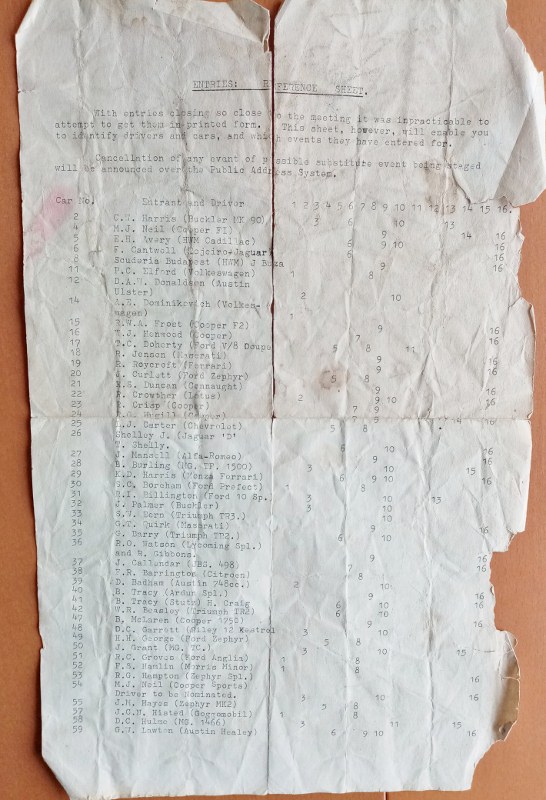 ENTRIES: REFERENCE SHEET.
With entries closing so close to the meeting it was impracticable to
attempt to get them in printed form. This sheet, however, will enable you
to identify drivers and cars, and which events they have entered for.
Cancellation of any event of possible substitute event being staged
will be announced over the Public Address System.
Car No. Entrant and Driver 1 2 3 4 5 6 7 8 9 10 11 12 13 14 15 16.
2 C.S. Harris (Buckler MK 90) 3 6 10 13
4 M.J. Neil (Cooper F1) 9 14 16
5 E.H. Avery (HWM Cadillac) 6 9 10 16
6 F. Cantwell (Tojeiro-Jaguar) 6 16
8 Scuderia Budapest (HWM) J 9
11 F.C. Elford (Volkeswagen) 1 8
12 D.A.V. Donaldson (Austin
Ulster) 2 10
14 A.Z. Dominikovich (Volken-
wagen) 1
15 R.W.A. Frost (Cooper F2) 9 16
16 Henwood (Cooper) 9
17 T.C. Doherty (Ford V/8 Coupe 5 8 11
18 R. Jenson (Maserati) 9 16
19 R. Roycroft (Ferrari) 9 16
20 A. Curlett (Ford Zephyr) 5 8
21 R.S. Duncan (Connaught) 9 16
22 R. Crowther (Lotus) 2 9 10
23 R. Crisp (Cooper) 7 9 16
24 (Cooper) 7 9
25 L.J. Carter (Chevrolet) 5 8
26 Shelley J. (Jaguar 'D'
T. Shelly. 6 10 16
27 J. Mansell (Alfa-Romeo) 9
28 R. Burling (MG. TF. 1500) 3 10
29 K.D. Harris (Monza Ferrari) 6 9 10 16
30 G.C. Boreham (Ford Prefect) 1 8
31 H.I. Billington (Ford 10 Sp. 3 10 13
32 J. Palmer (Buckler) 3 6 10
33 S.V. Dorn (Triumph TR3.) 6 10
34 G.T. Quirk (Maserati) 9 16
35 G. Darry (Triumph TR2.) 6 10
36 R.O. Watson (Lycoming Spl.)
and R. Gibbons. 9 16
37 J. Callendar (JBS. 498) 7
38 T.R. Barrington (Citroen) 8
39 D. Badham (Austin 748cc.) 2 10
40 B. Tracy (Ardun Spl.) 16
41 B. Tracy (Stutz) H. Craig 6 10
42 W.R. Beasley (Triumph TR2) 6 10
47 B. McLaren (Cooper 1750) 9 16
48 D.C. Garrett (Riley 12 Kestrel 3 10
49 H.H. George (Ford Zephyr) 5 8
50 J. Grant (MG. TC.) 3 10
51 R.C. Groves (Ford Anglia) 1 8
52 F.N. Hamlin (Morris Minor) 1 8
53 R.G. Hampton (Zephyr Spl.) 16
54 M.J. Neil (Cooper Sports)
Driver to be Nominated. 3 10
55 J.N. Hayes (Zephyr MK2) 5 8
57 J.G.H. Histed (Goggomobil) 1 8
58 D.C. Hulme (MG. 1466) 3 11 15
59 G.V. Lawton (Austin Healey) 6 9 10 16